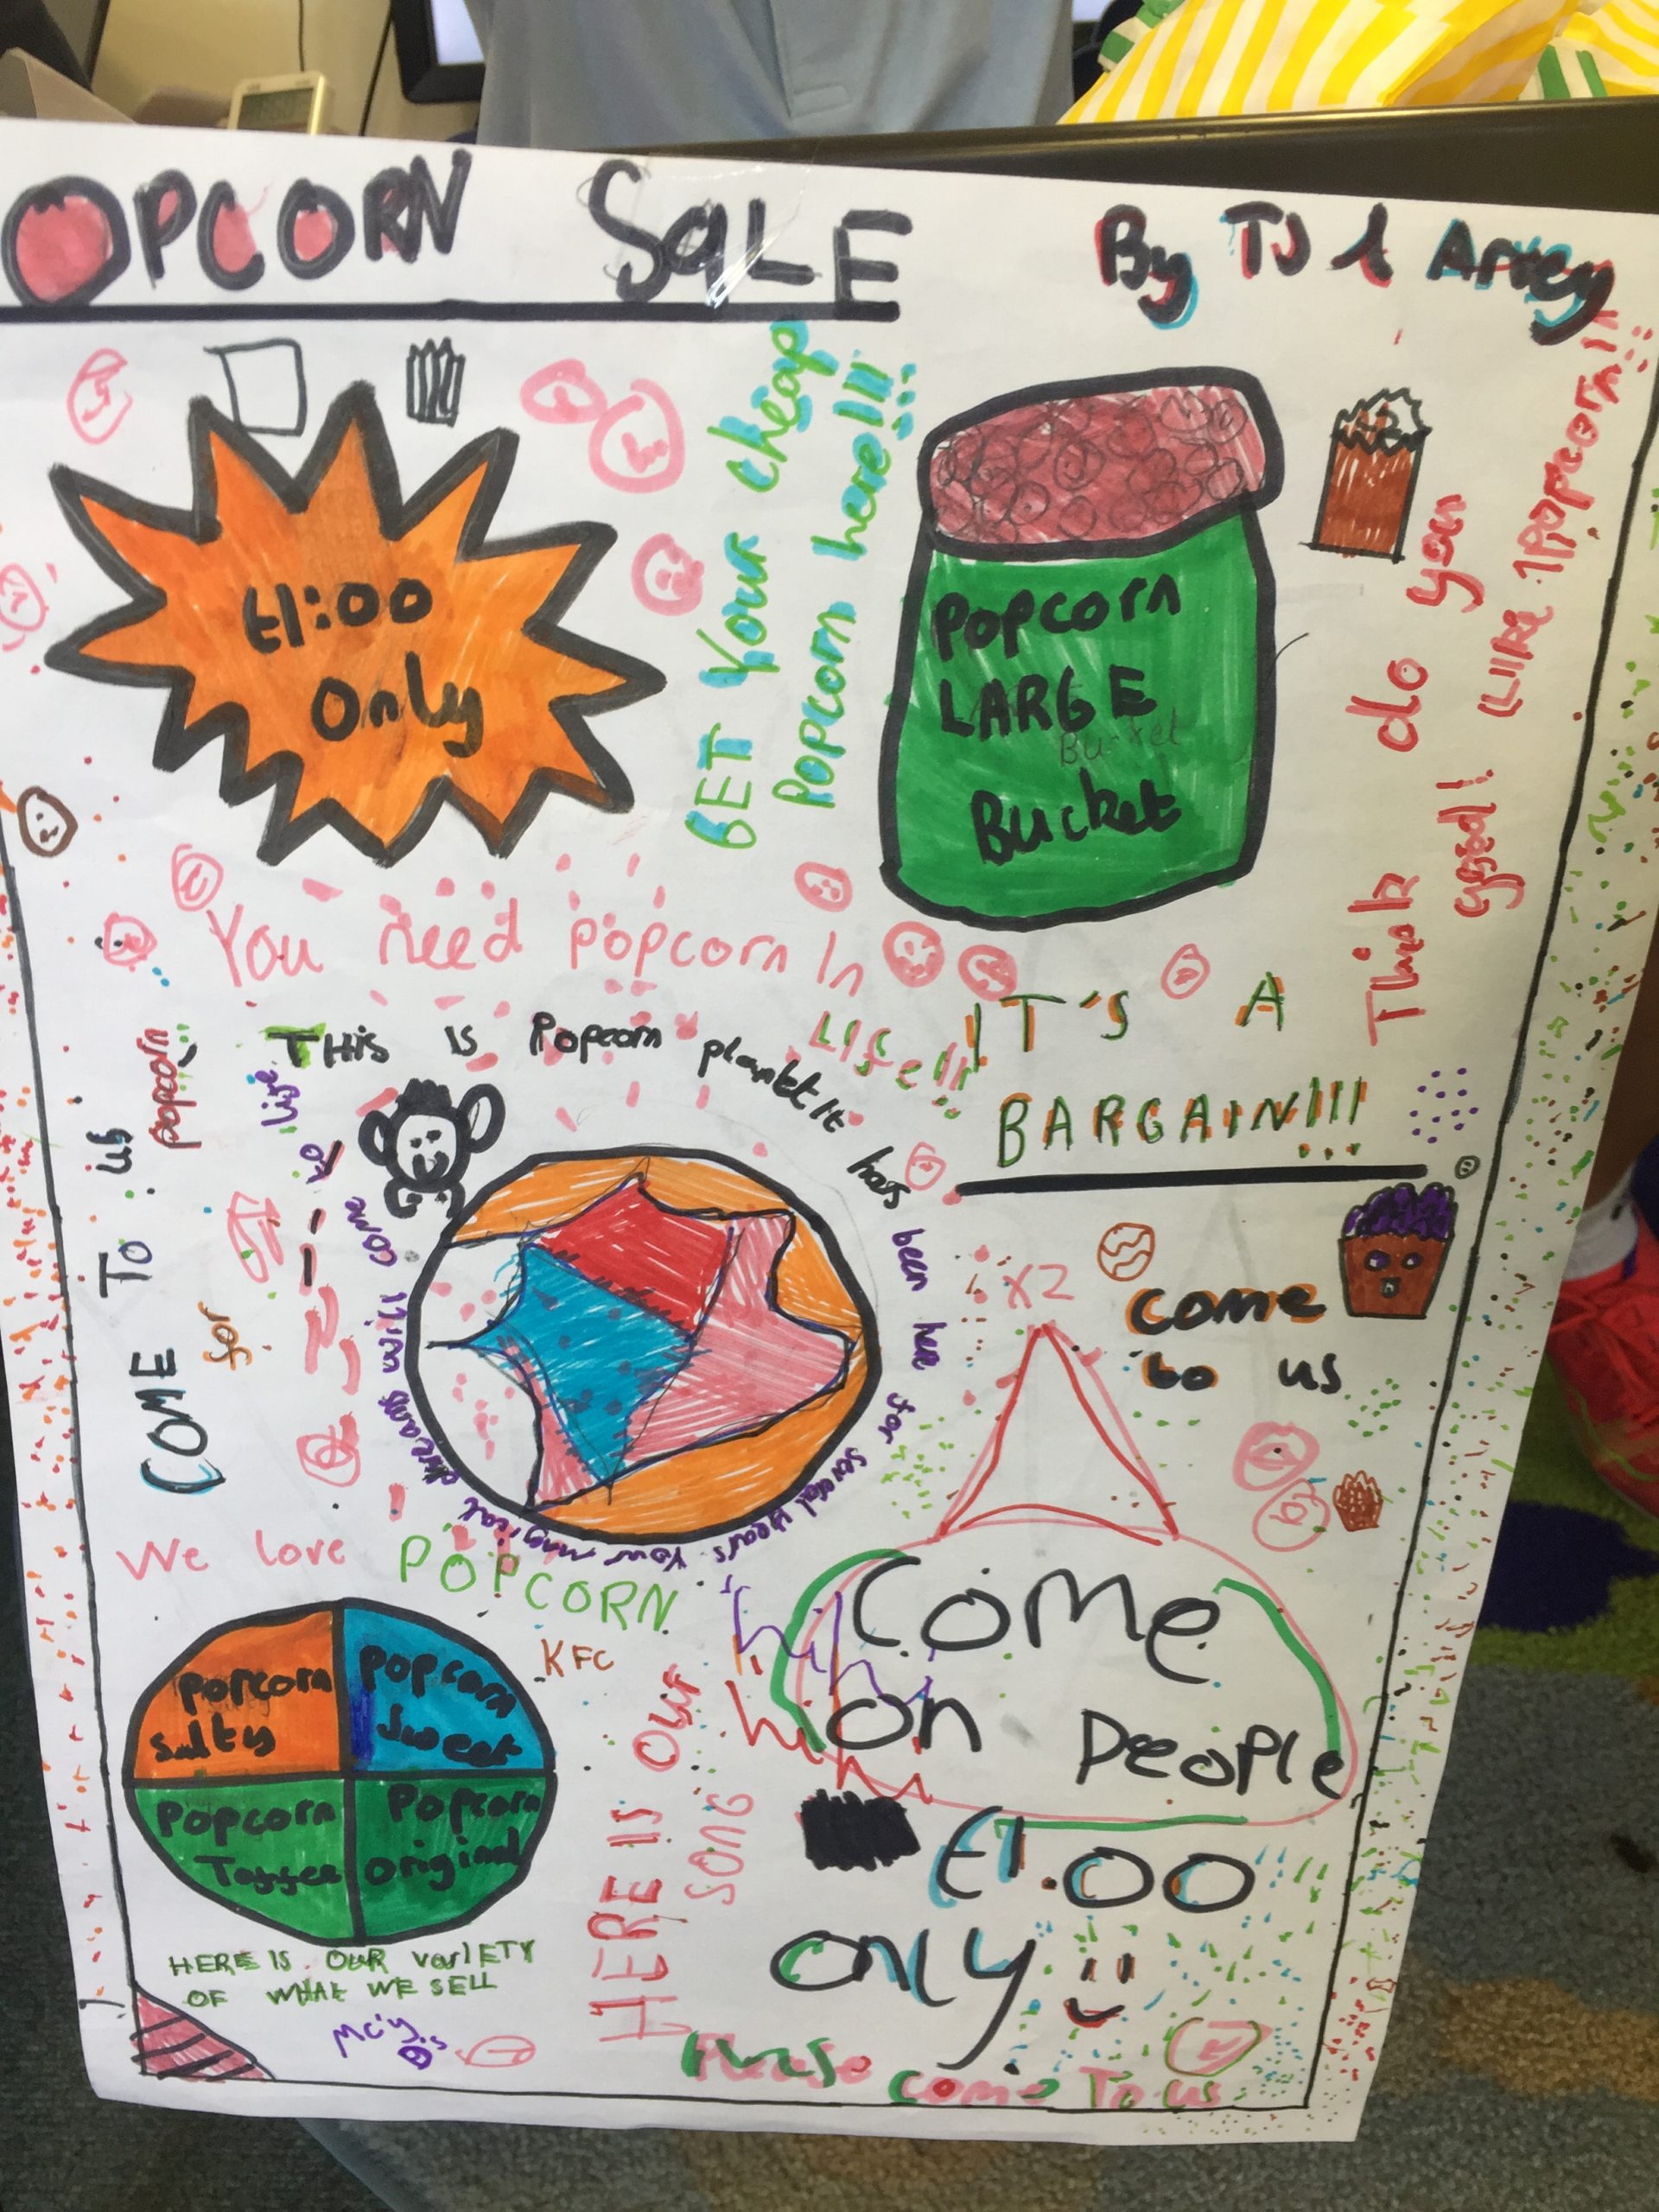 OPCORN SALE
By TJ & Arvey
£1:00
Only
BET Your cheap
Popcorn here!!!
POPCORN
LARGE
Bucket
Bucket
Think do you
(LIKE 1POPCORN!!
You need popcorn In
Life!!!
IT'S A
BARGAIN!!!
THis is Popcorn planet It has been here for several years. Your magical dreams will come to live
COME To us
for
popcorn
x2
Come
to us
We love POPCORN
KFC
Popcorn
Salty
Popcorn
Sweet
Popcorn
Toffee
Popcorn
original
HERE IS OUR VARIETY
OF WHAT WE SELL
HERE IS OUR
SONG
Come
on People
£1.00
only
Please come To us